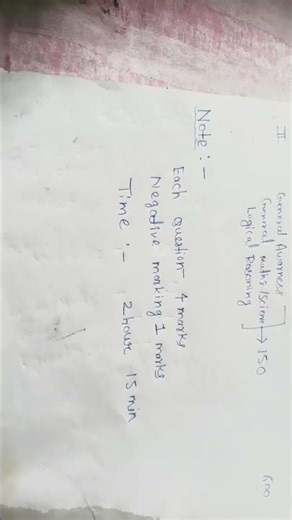 II General Awarness
General Maths/Science → 150 600
Logical Reasoning
Note :-
Each question - 4 marks
Negative marking 1 marks
Time :- 2 hour 15 min